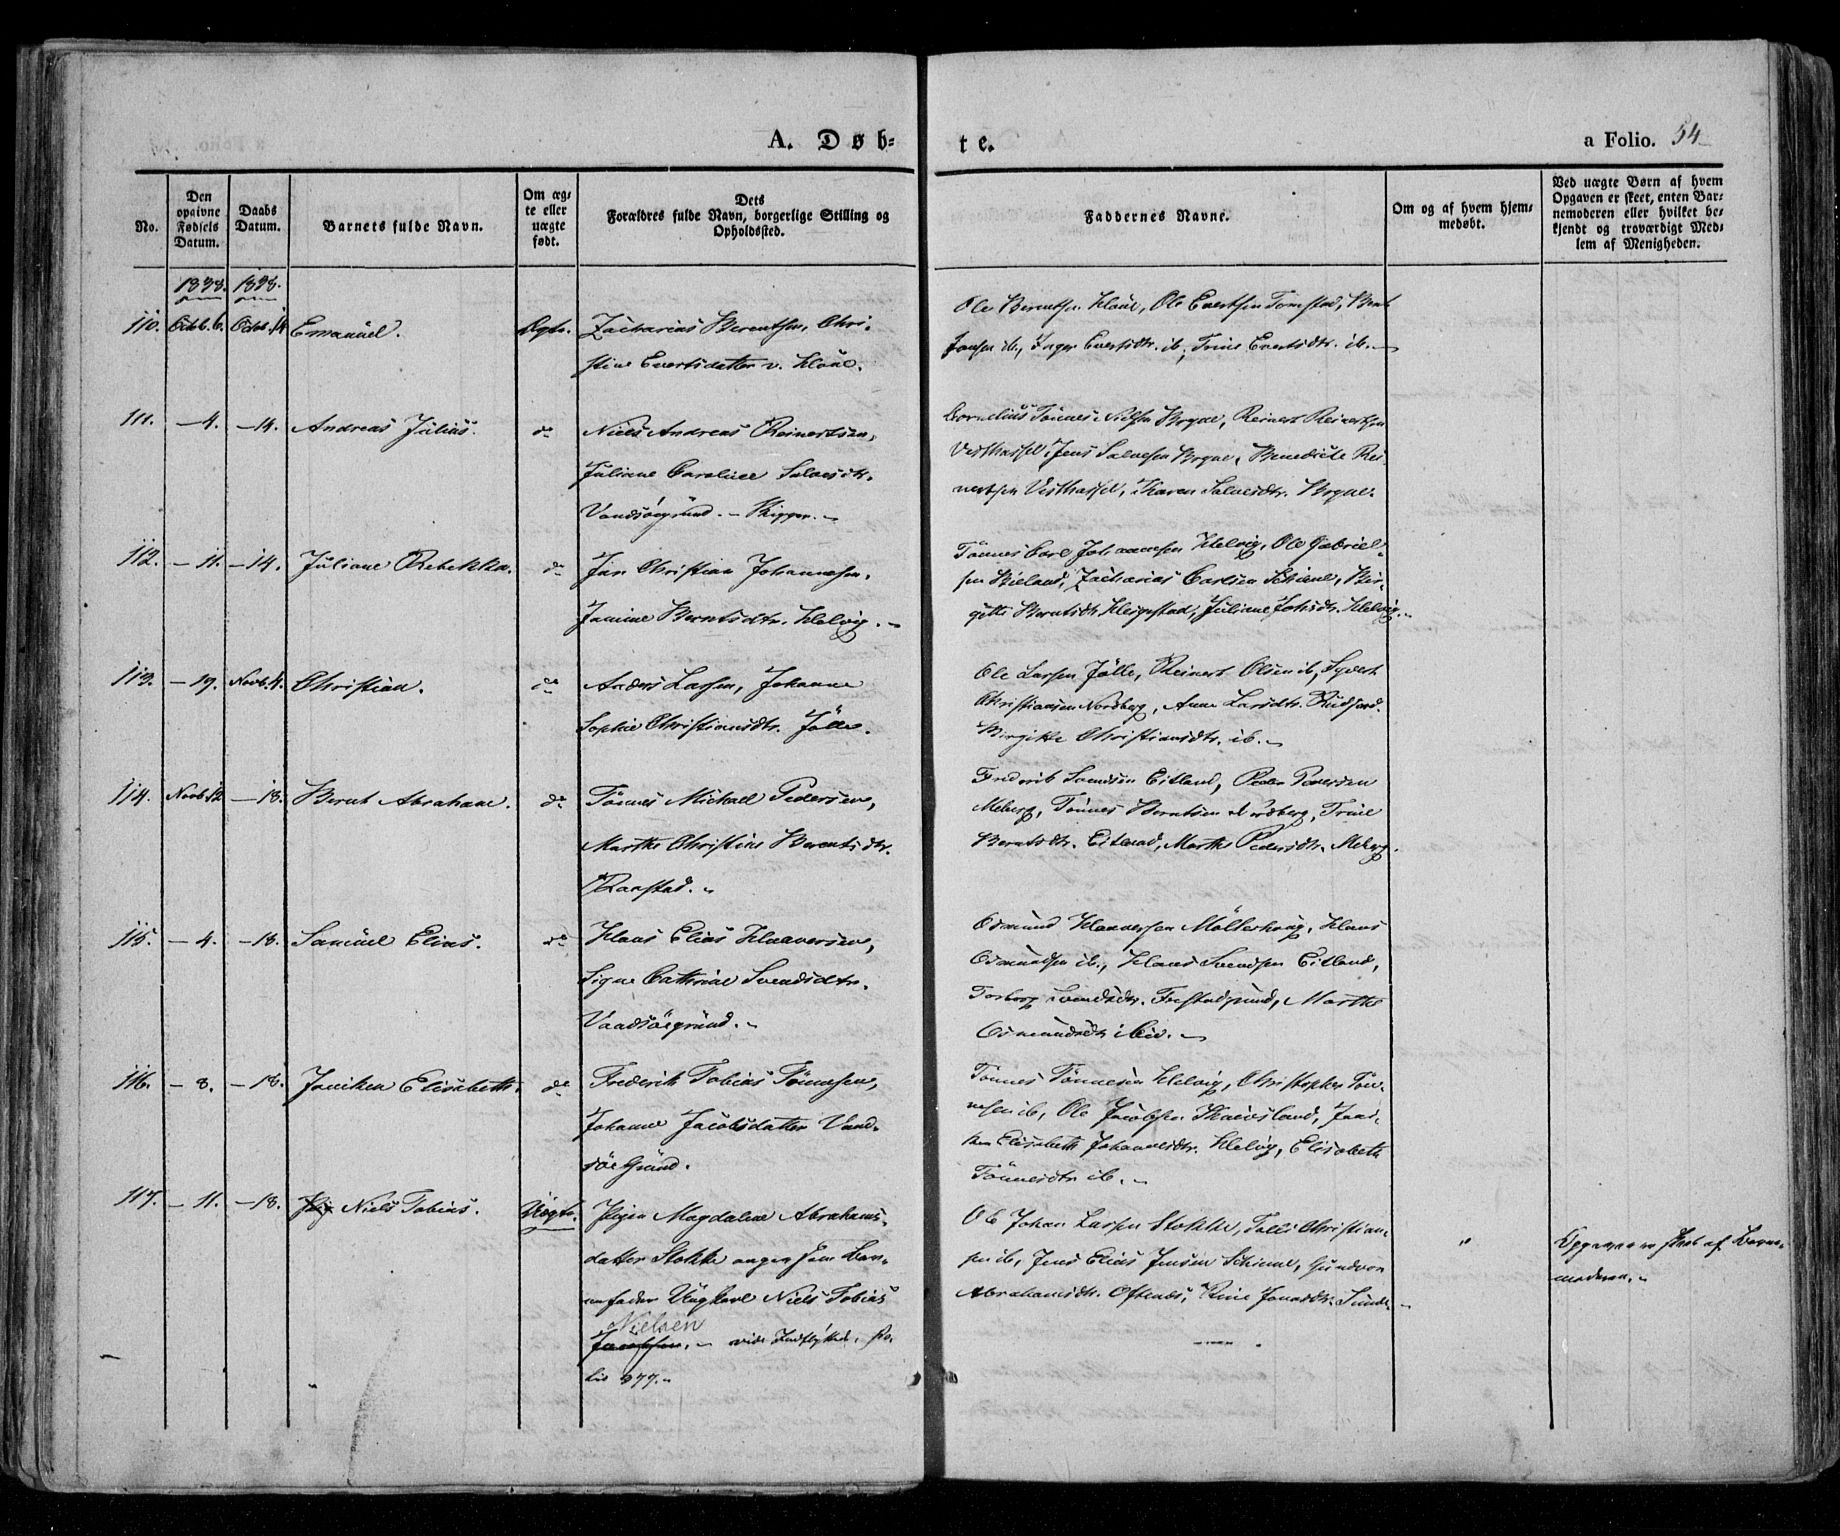 A. Døb-
te.
a Folio. 54
No.
Den opgivne Fødsels Datum.
Daabs Datum.
Barnets fulde Navn.
Om ægte eller uægte født.
Dets Forældres fulde Navn, borgerlige Stilling og Opholdssted.
Faddernes Navne.
Om og af hvem hjemmedøbt.
Ved uægte Børn af hvem Opgaven er skeet, enten Barnemoderen eller hvilket bekjendt og troværdigt Medlem af Menigheden.
1838. 1838.
110. Octb. 6. Octb. 14 Emanuel. Ægte. Zacharias Berentsen, Chri-
stine Evertsdatter v. Kloue.
Ole Berentsen Kloue, Ole Evertsen Tomstad, Bernt
Jansen ib., Inger Evertsdtr. ib., Trine Evertsdtr. ib.
111. - 4. - 14. Andreas Julius. do Niels Andreas Reinertsen,
Juliane Caroline Salvesdtr.
Vandsöegrund. - Skipper. -
Cornelius Tönnes Nilsen Bryne, Reinert Reinertsen
Vesthassel, Jens Salvesen Bryne, Benedicte Rei-
nertsen Vesthassel, Karen Salvesdtr. Bryne.
112. - 11. - 14. Juliane Rebekka. do Jan Christian Johannesen,
Janine Berntsdtr. Helvig. -
Tönnes Carl Johannesen Helvig, Ole Gabriel-
sen Bieland, Zacharias Carlsen Schiene, Bir-
gitte Berntsdtr. Heigrestad, Juliane Johsdtr. Helvig.
113. - 19. Novb. 4. Christian. do Anders Larsen, Johanne
Sophie Christiansdtr. Jölle.
Ole Larsen Jölle, Reinert Olsen ib., Syvert
Christiansen Nordberg, Anne Larsdtr. Rudjord.
Birgitte Christiansdtr. ib. -
114. Novb. 12 - 18. Bernt Abraham. do Tönnes Michael Pedersen,
Marthe Christine Berentsdtr.
Ranestad. -
Frederik Svendsen Eitland, Peder Pedersen
Meberg, Tönnes Berntsen Nordberg, Trine
Berntsdtr. Eitland, Marthe Pedersdtr. Meberg.
115. - 4. - 18. Samuel Elias. do Hans Elias Haaversen,
Signe Cathrine Svendsdtr.
Vandsöegrund. -
Osmund Haaversen Möllerhoug, Hans
Osmundsen ib., Hans Svendsen Eitland,
Torborg Svendsdtr. Farstadgrund, Marthe
Osmundsdtr ibid. -
116. - 8. - 18. Janiken Elisabeth. do Frederik Tobias Tönnesen,
Johanne Jacobsdatter Vand-
söe Grund.
Tönnes Tönnesen Helvig, Christopher Tön-
nesen ib, Ole Jacobsen Skeibsland, Jani-
ken Elisabeth Johannesdtr. Helvig, Elisabeth
Tönnesdtr ib. -
117. - 11. - 18. Niels Tobias. Uægte. Pigen Magdalene Abrahams-
datter Stokke angiv som Bar-
nefader Ungkarl Niels Tobias
Nielsen
Jacobsen. - vide Indflyttede. Fo-
lio 377. -
Ole Johan Larsen Stokke, Tolle Christian-
sen ib, Jens Elias Jensen Schiene, Gundvor
Abrahamsdtr. Oftenæs, Rine Jonasdtr. Sunde. -
"
Opgaven er skeet af Barne-
moderen. -